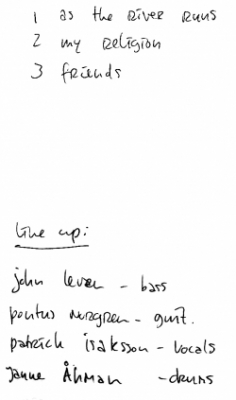 1 as the River Runs
2 my Religion
3 friends
line up:
john leven - bass
pontus norgren - guit.
patrick isaksson - vocals
janne Åhman - drums